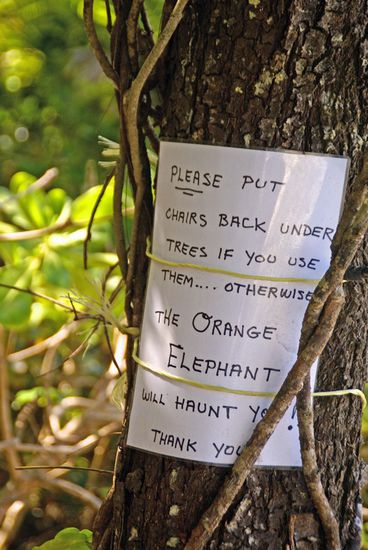 PLEASE PUT
CHAIRS BACK UNDER
TREES IF YOU USE
THEM.... OTHERWISE
THE ORANGE
ELEPHANT
WILL HAUNT YOU!
THANK YOU